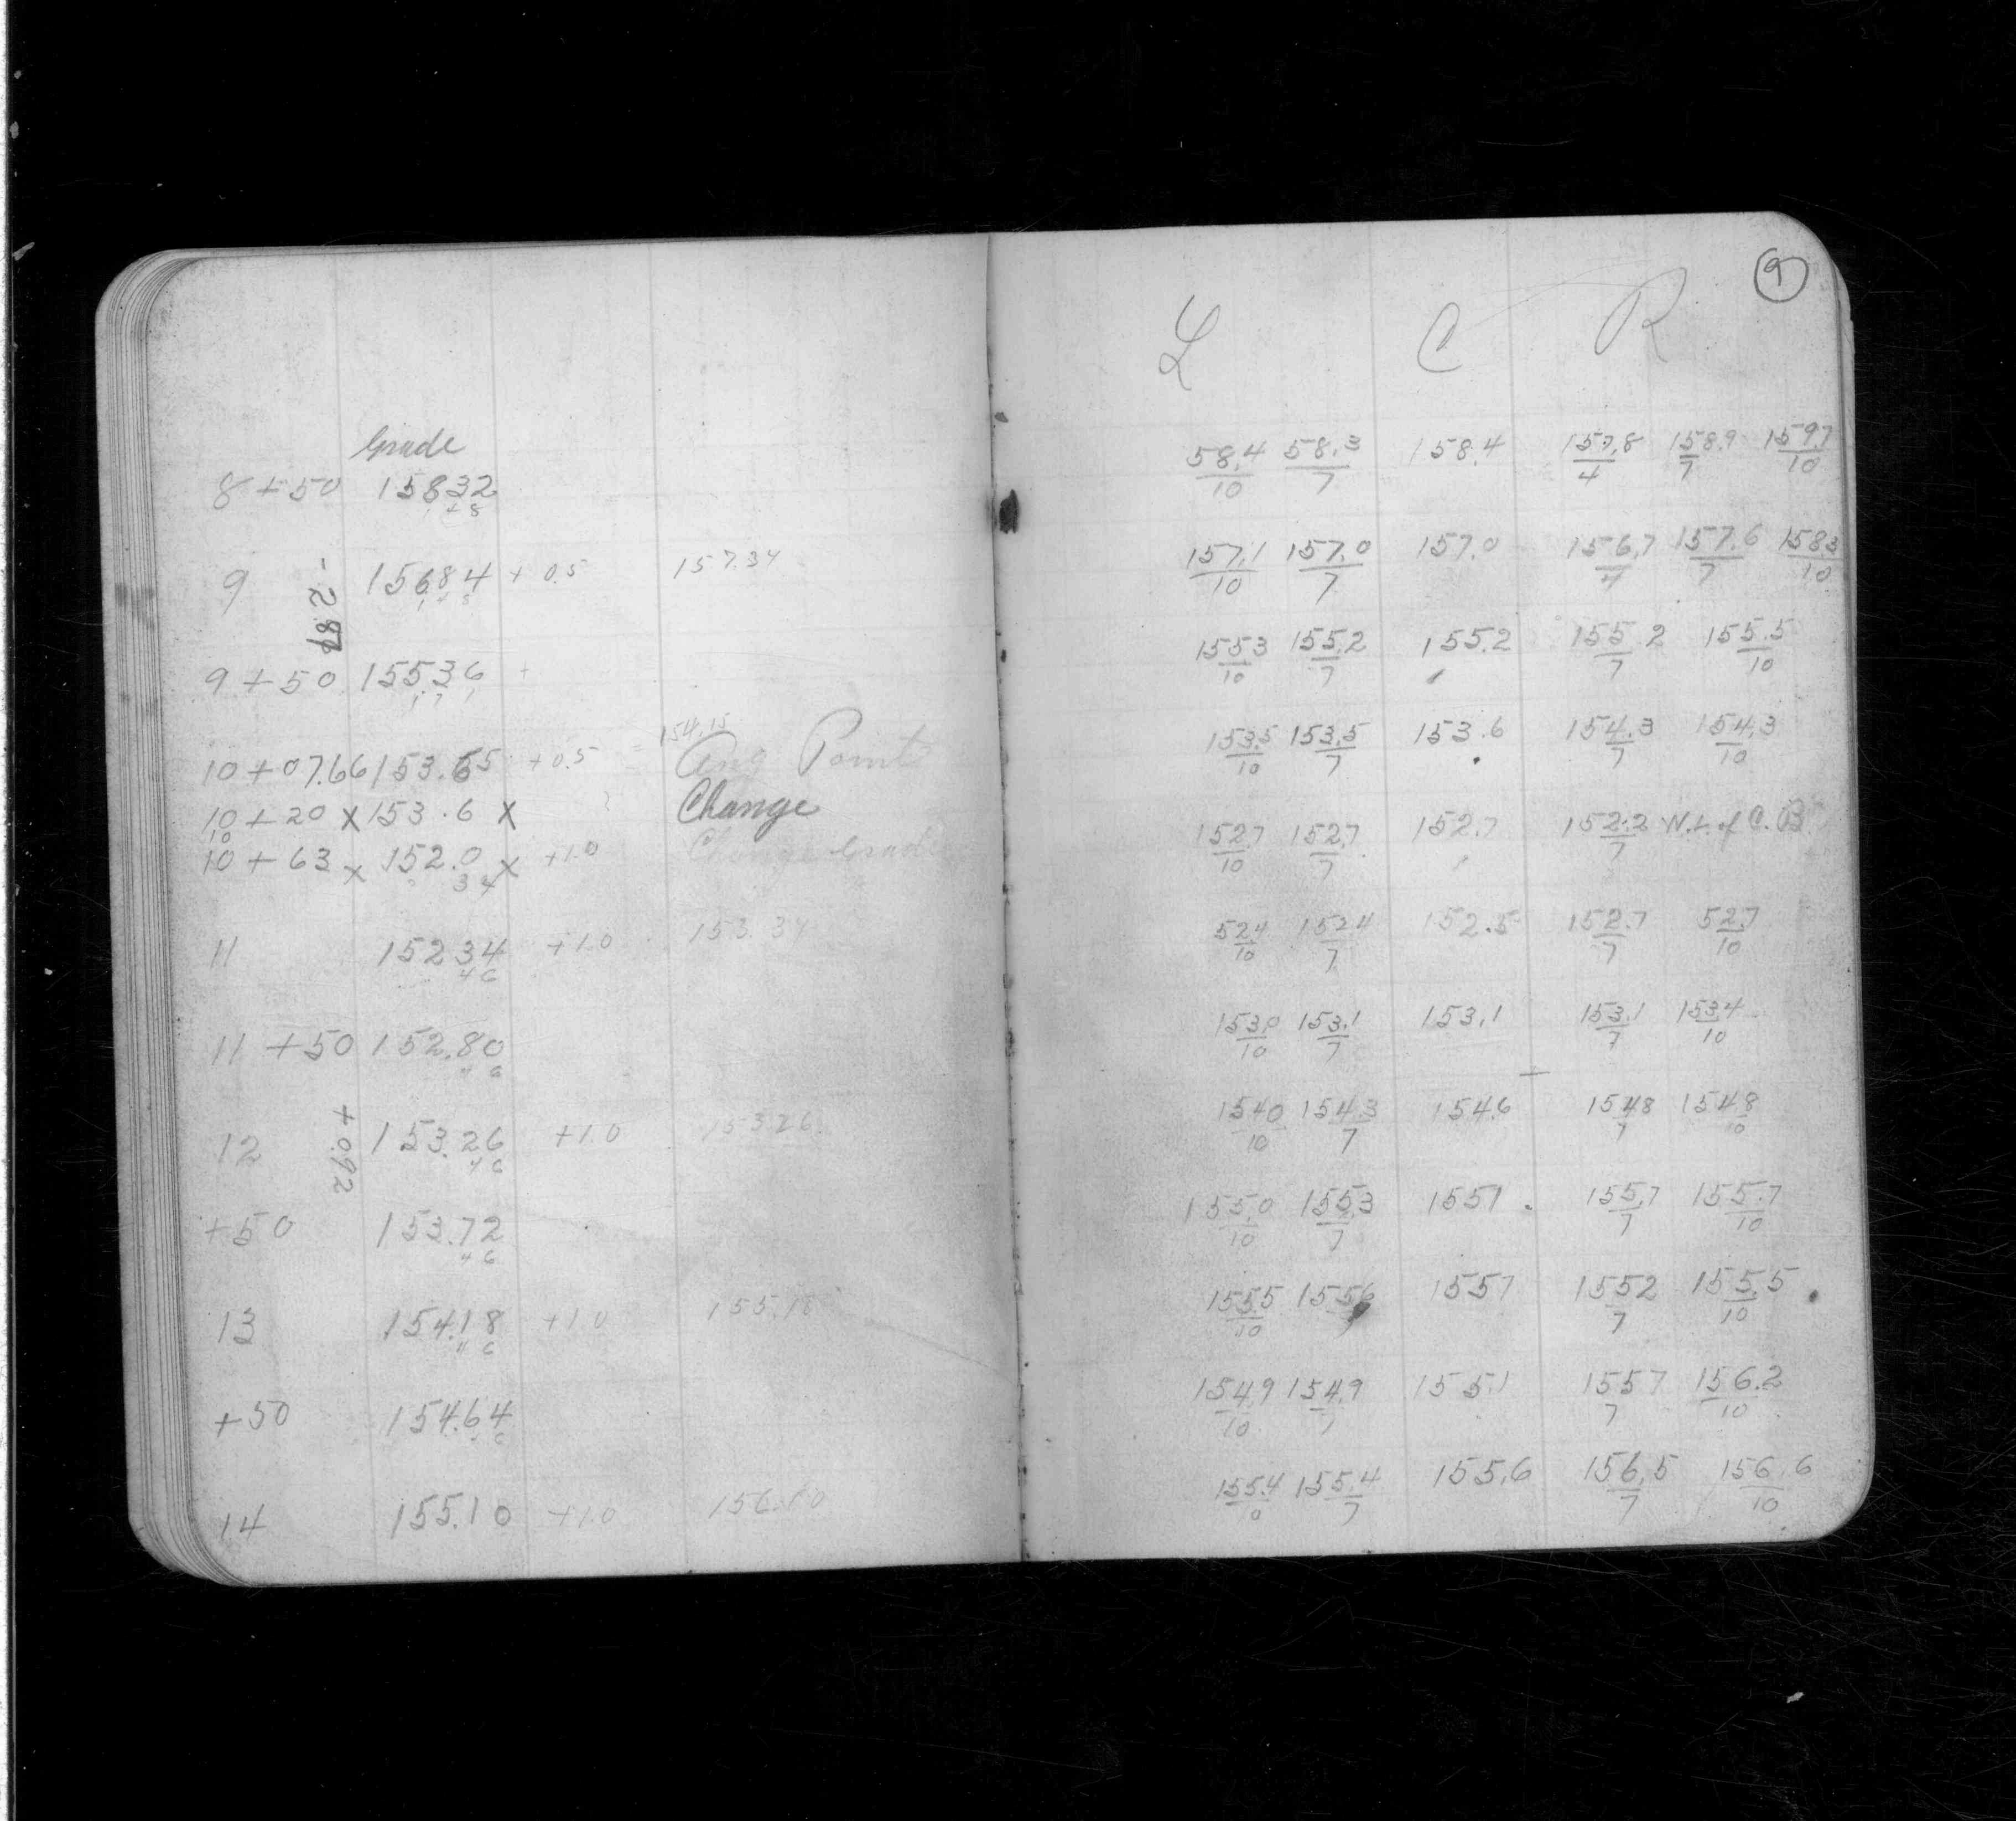 9
L C R
Grade
8+50 158.32 58.4/10 58.3/7 158.4 157.8/4 158.9/7 159.7/10
1 4 8
9 156.84 +0.5 157.34 157.1/10 157.0/7 157.0 156.7/4 157.6/7 158.3/10
1 4 8
9+50 155.36 + 155.3/10 155.2/7 155.2 155.2/7 155.5/10
154.15
10+07.66 153.65 +0.5 Ang Point 153.5/10 153.5/7 153.6 154.3/7 154.3/10
10+20 x 153.6 x Change
10
10+63 x 152.0 x +1.0 Change Grade 152.7/10 152.7/7 152.7 152.2/7 W.L. of C.B.
34
11 152.34 +1.0 153.34 52.4/10 152.4/7 152.5 152.7/7 52.7/10
46
11+50 152.80 153.0/10 153.1/7 153.1 153.1/7 153.4/10
46
+0.92
12 153.26 +1.0 153.26 154.0/10 154.3/7 154.6 154.8/7 154.8/10
46
+50 153.72 155.0/10 155.3/7 155.1 155.7/7 155.7/10
46
13 154.18 +1.0 155.18 155.5/10 155.6/7 155.7 155.2/7 155.5/10
46
+50 154.64 154.9/10 154.9/7 155.1 155.7/7 156.2/10
14 155.10 +1.0 156.10 155.4/10 155.4/7 155.6 156.5/7 156.6/10